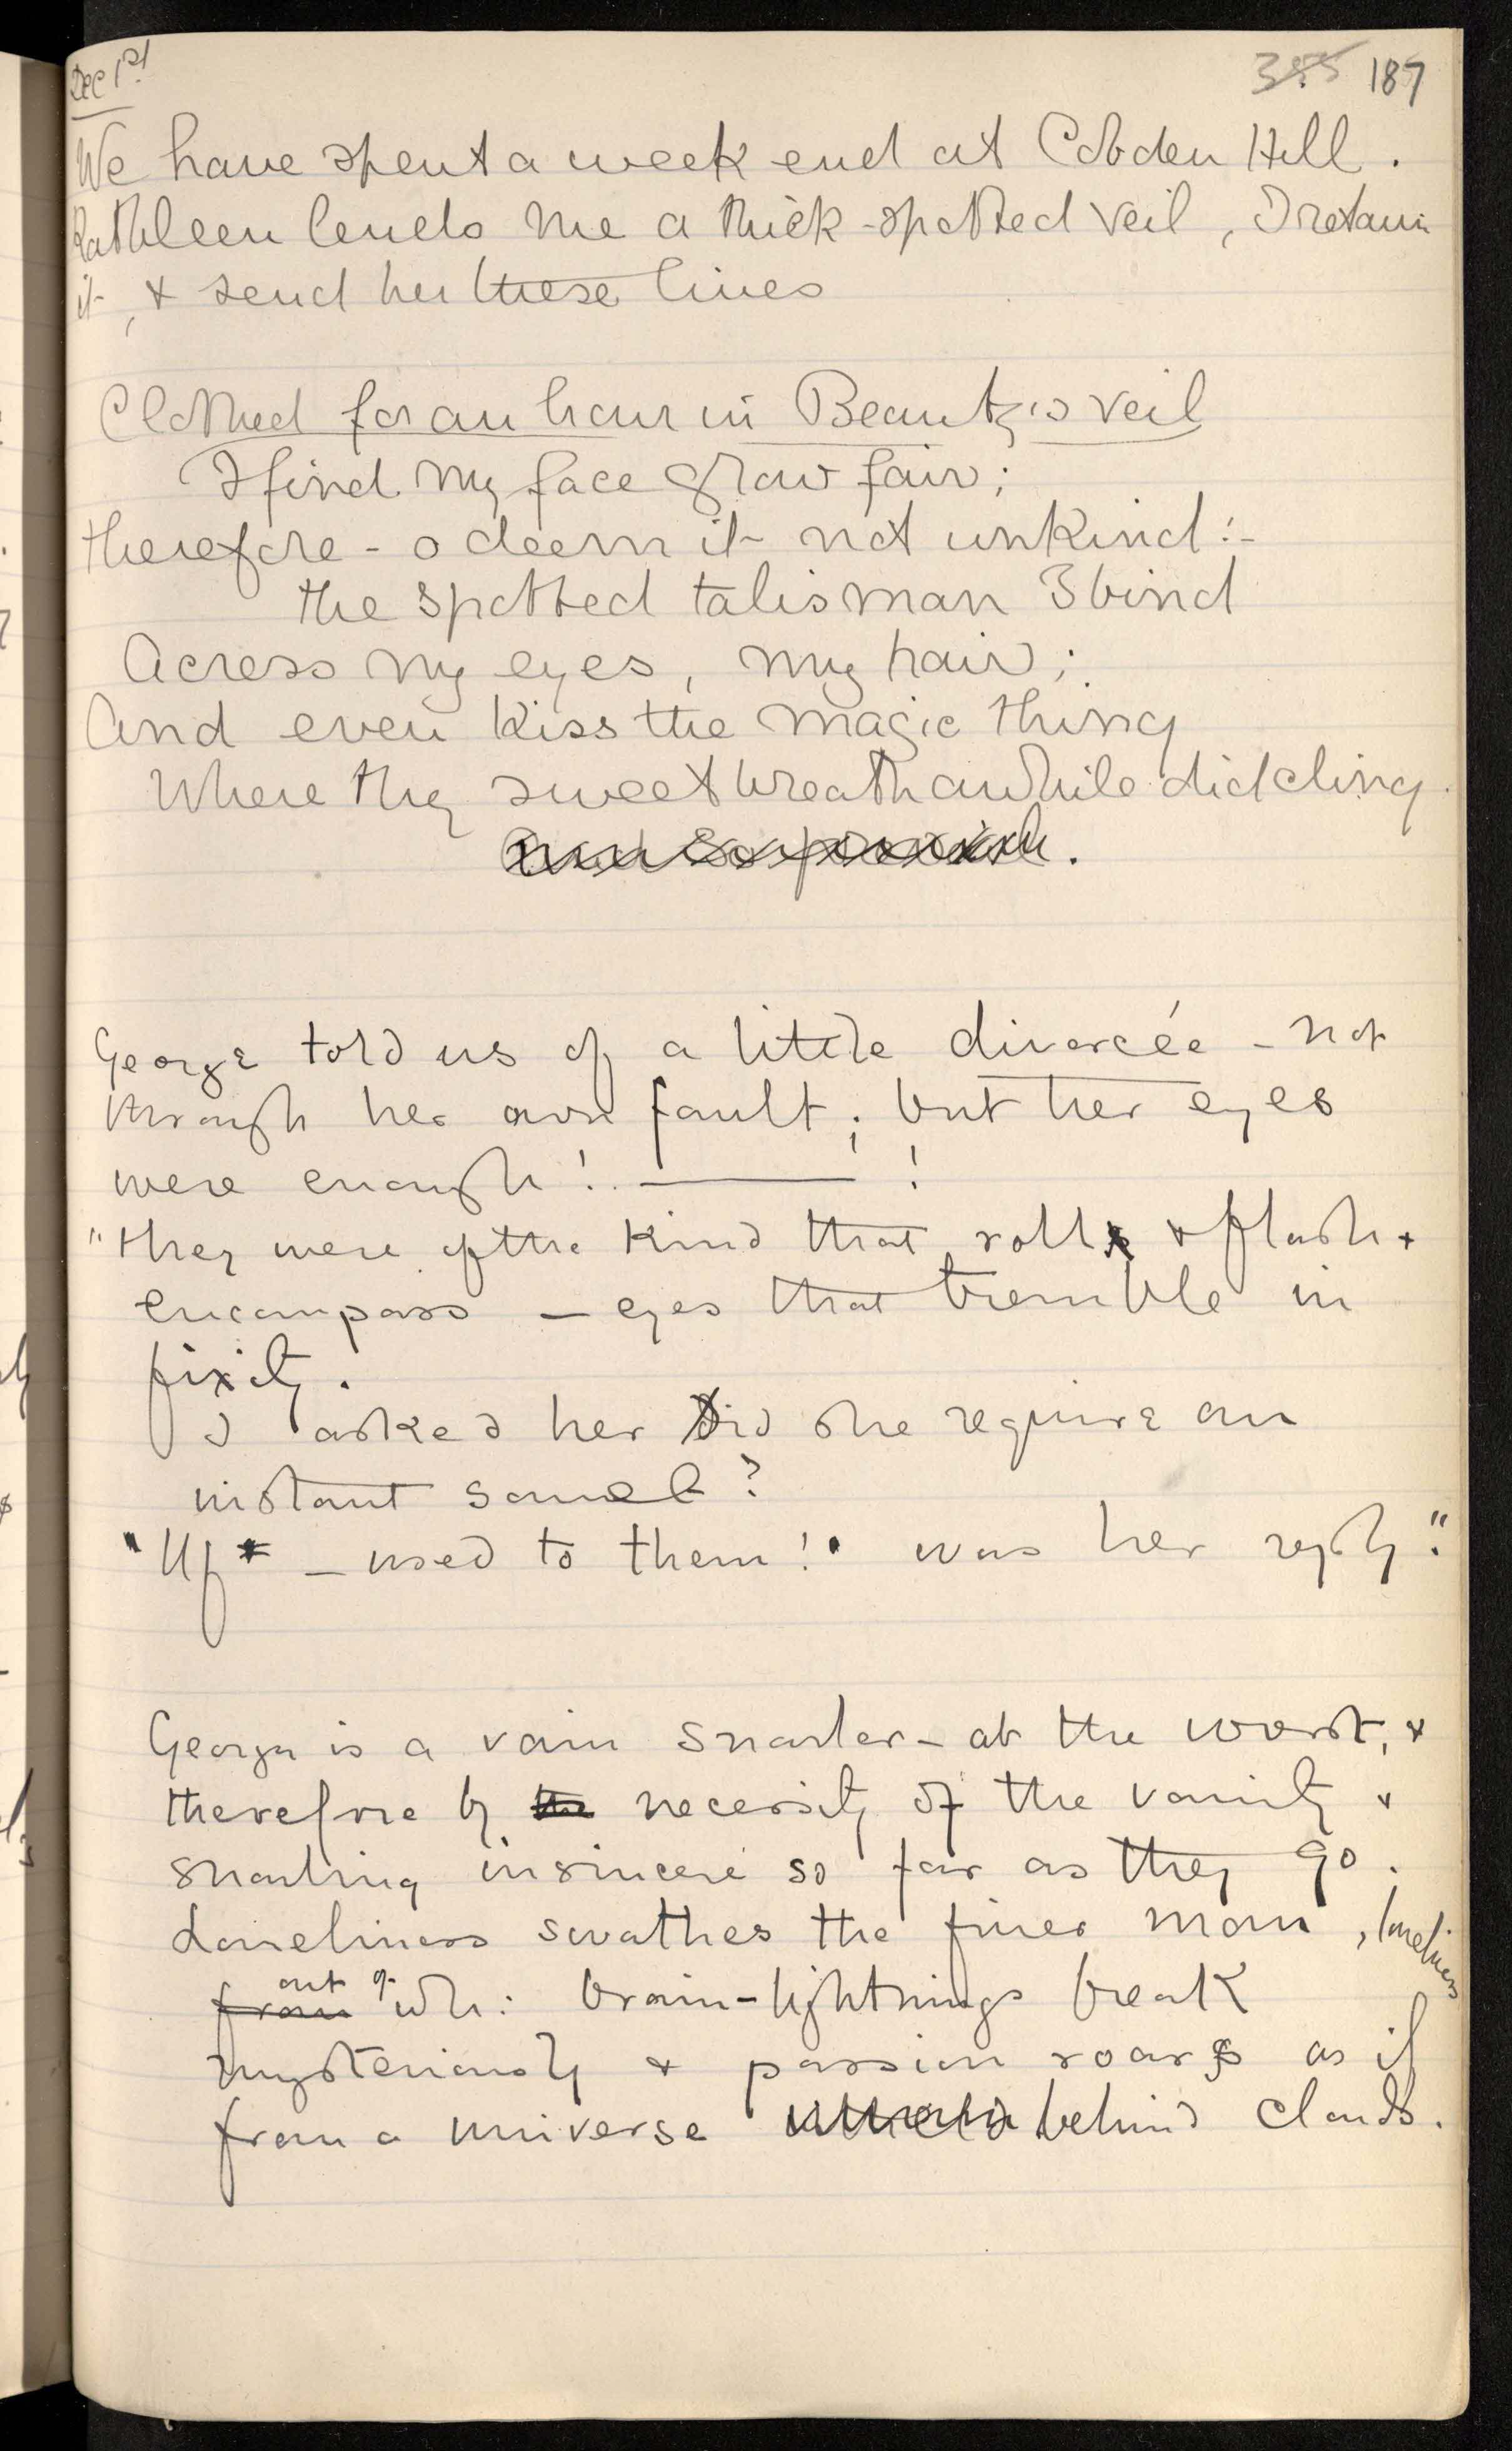 Dec 1st
385 187
We have spent a week end at Cobden Hill.
Kathleen lends me a thick-spotted veil, I retain
it, & send her these lines
Clothed for an hour in Beauty's veil
I find my face grow fair;
therefore - o deem it not unkind:-
the spotted talisman I bind
Across my eyes, my hair;
And even kiss the magic thing
Where thy sweet breath awhile did cling.
George told us of a little divorcée - not
through her own fault; but her eyes
were enough! ——— !
"they were of the kind that roll & flash &
encompass — eyes that tremble in
fixity.
I asked her did she require an
instant
"Uf - used to them!" was her reply."
George is a vain snarler - at the worst, &
therefore by the necessity of the vanity &
snarling insincere so far as they go.
Loneliness swathes the finer man, loneliness
from out of wh: brain-lightnings break
mysteriously & passion roars as if
from a universe behind clouds.